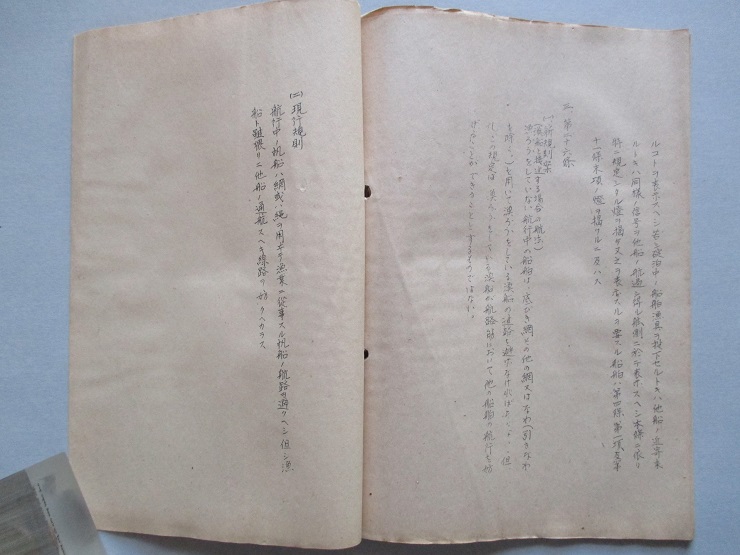 ルコトヲ表示スヘシ若シ碇泊中ノ船舶漁具ヲ投下セルトキハ他船ノ近寄来
ルトキハ同様ノ信号ヲ他船ノ航過シ得ル舷側ニ於テ表示スヘシ本條ニ依リ
特ニ規定シタル燈ヲ掲ケ又ハ之ヲ表示スルヲ要スル船舶ハ第四條第一項及第
十一條末項ノ燈ヲ掲クルニ及ハス
三 第二十六條
(一)新規則案
(漁船と接近する場合の航法)
漁ろうをしていない航行中の船舶は、底びき網その他の網又はなわ(引きなわ
を除く。)を用いて漁ろうをしている漁船の進路を避けなければならない。但
し、この規定は、漁ろうをしている漁船が航路筋において他の船舶の航行を妨
げることができることとするものではない。
(二)現行規則
航行中ノ帆船ハ網或ハ縄ヲ用ヰテ漁業ニ從事スル帆船ノ航路ヲ避クヘシ但シ漁
船ト雖猥リニ他船ノ通航スヘキ線路ヲ妨クヘカラス